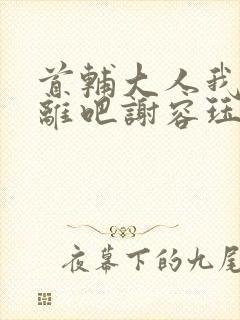 首輔大人我
離吧謝容珏
夜幕下的九尾